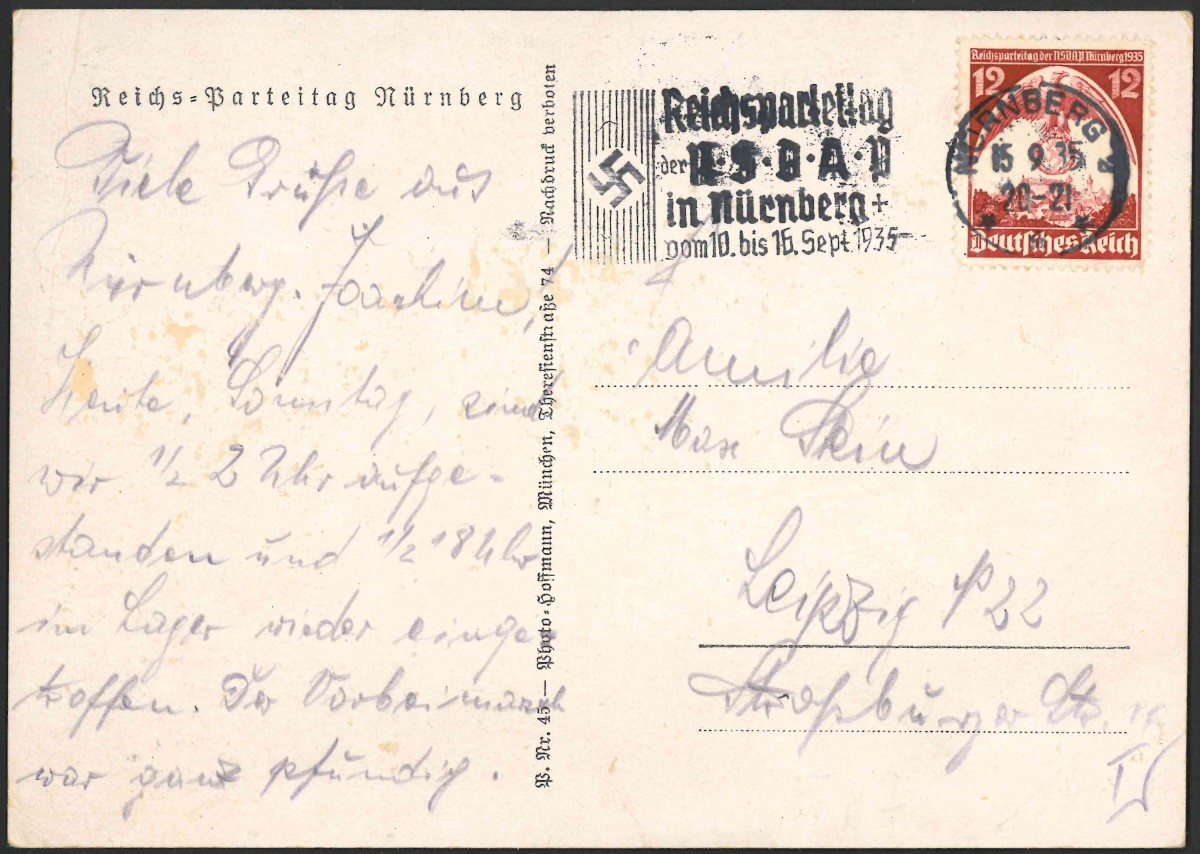 Reichs-Parteitag Nürnberg
Viele Grüße aus
Nürnberg. Joachim!
Heute, Sonntag, sind
wir 1/2 2 Uhr aufge-
standen und 1/2 18 Uhr
im Lager wieder einge-
troffen. Der Vorbeimarsch
war ganz pfundig.
P. Nr. 45 — Photo-Hoffmann, München, Theresienstraße 74 — Nachdruck verboten
Reichsparteitag
der N·S·D·A·P
in Nürnberg+
vom 10. bis 16. Sept. 1935
Reichsparteitag der NSDAP Nürnberg 1935
12 12
Deutsches Reich
NÜRNBERG
15 9.35
20-21
Familie
Max Stein
Leipzig S 22
Straßburger Str.